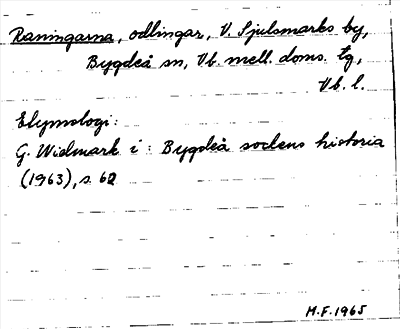 Raningarna, odlingar, V. Sjulsmarks by,
Bygdeå sn, Vb. mell. doms. tg,
Vb. l.
Etymologi:
G. Widmark i: Bygdeå sockens historia
(1963), s 62
M.F. 1965